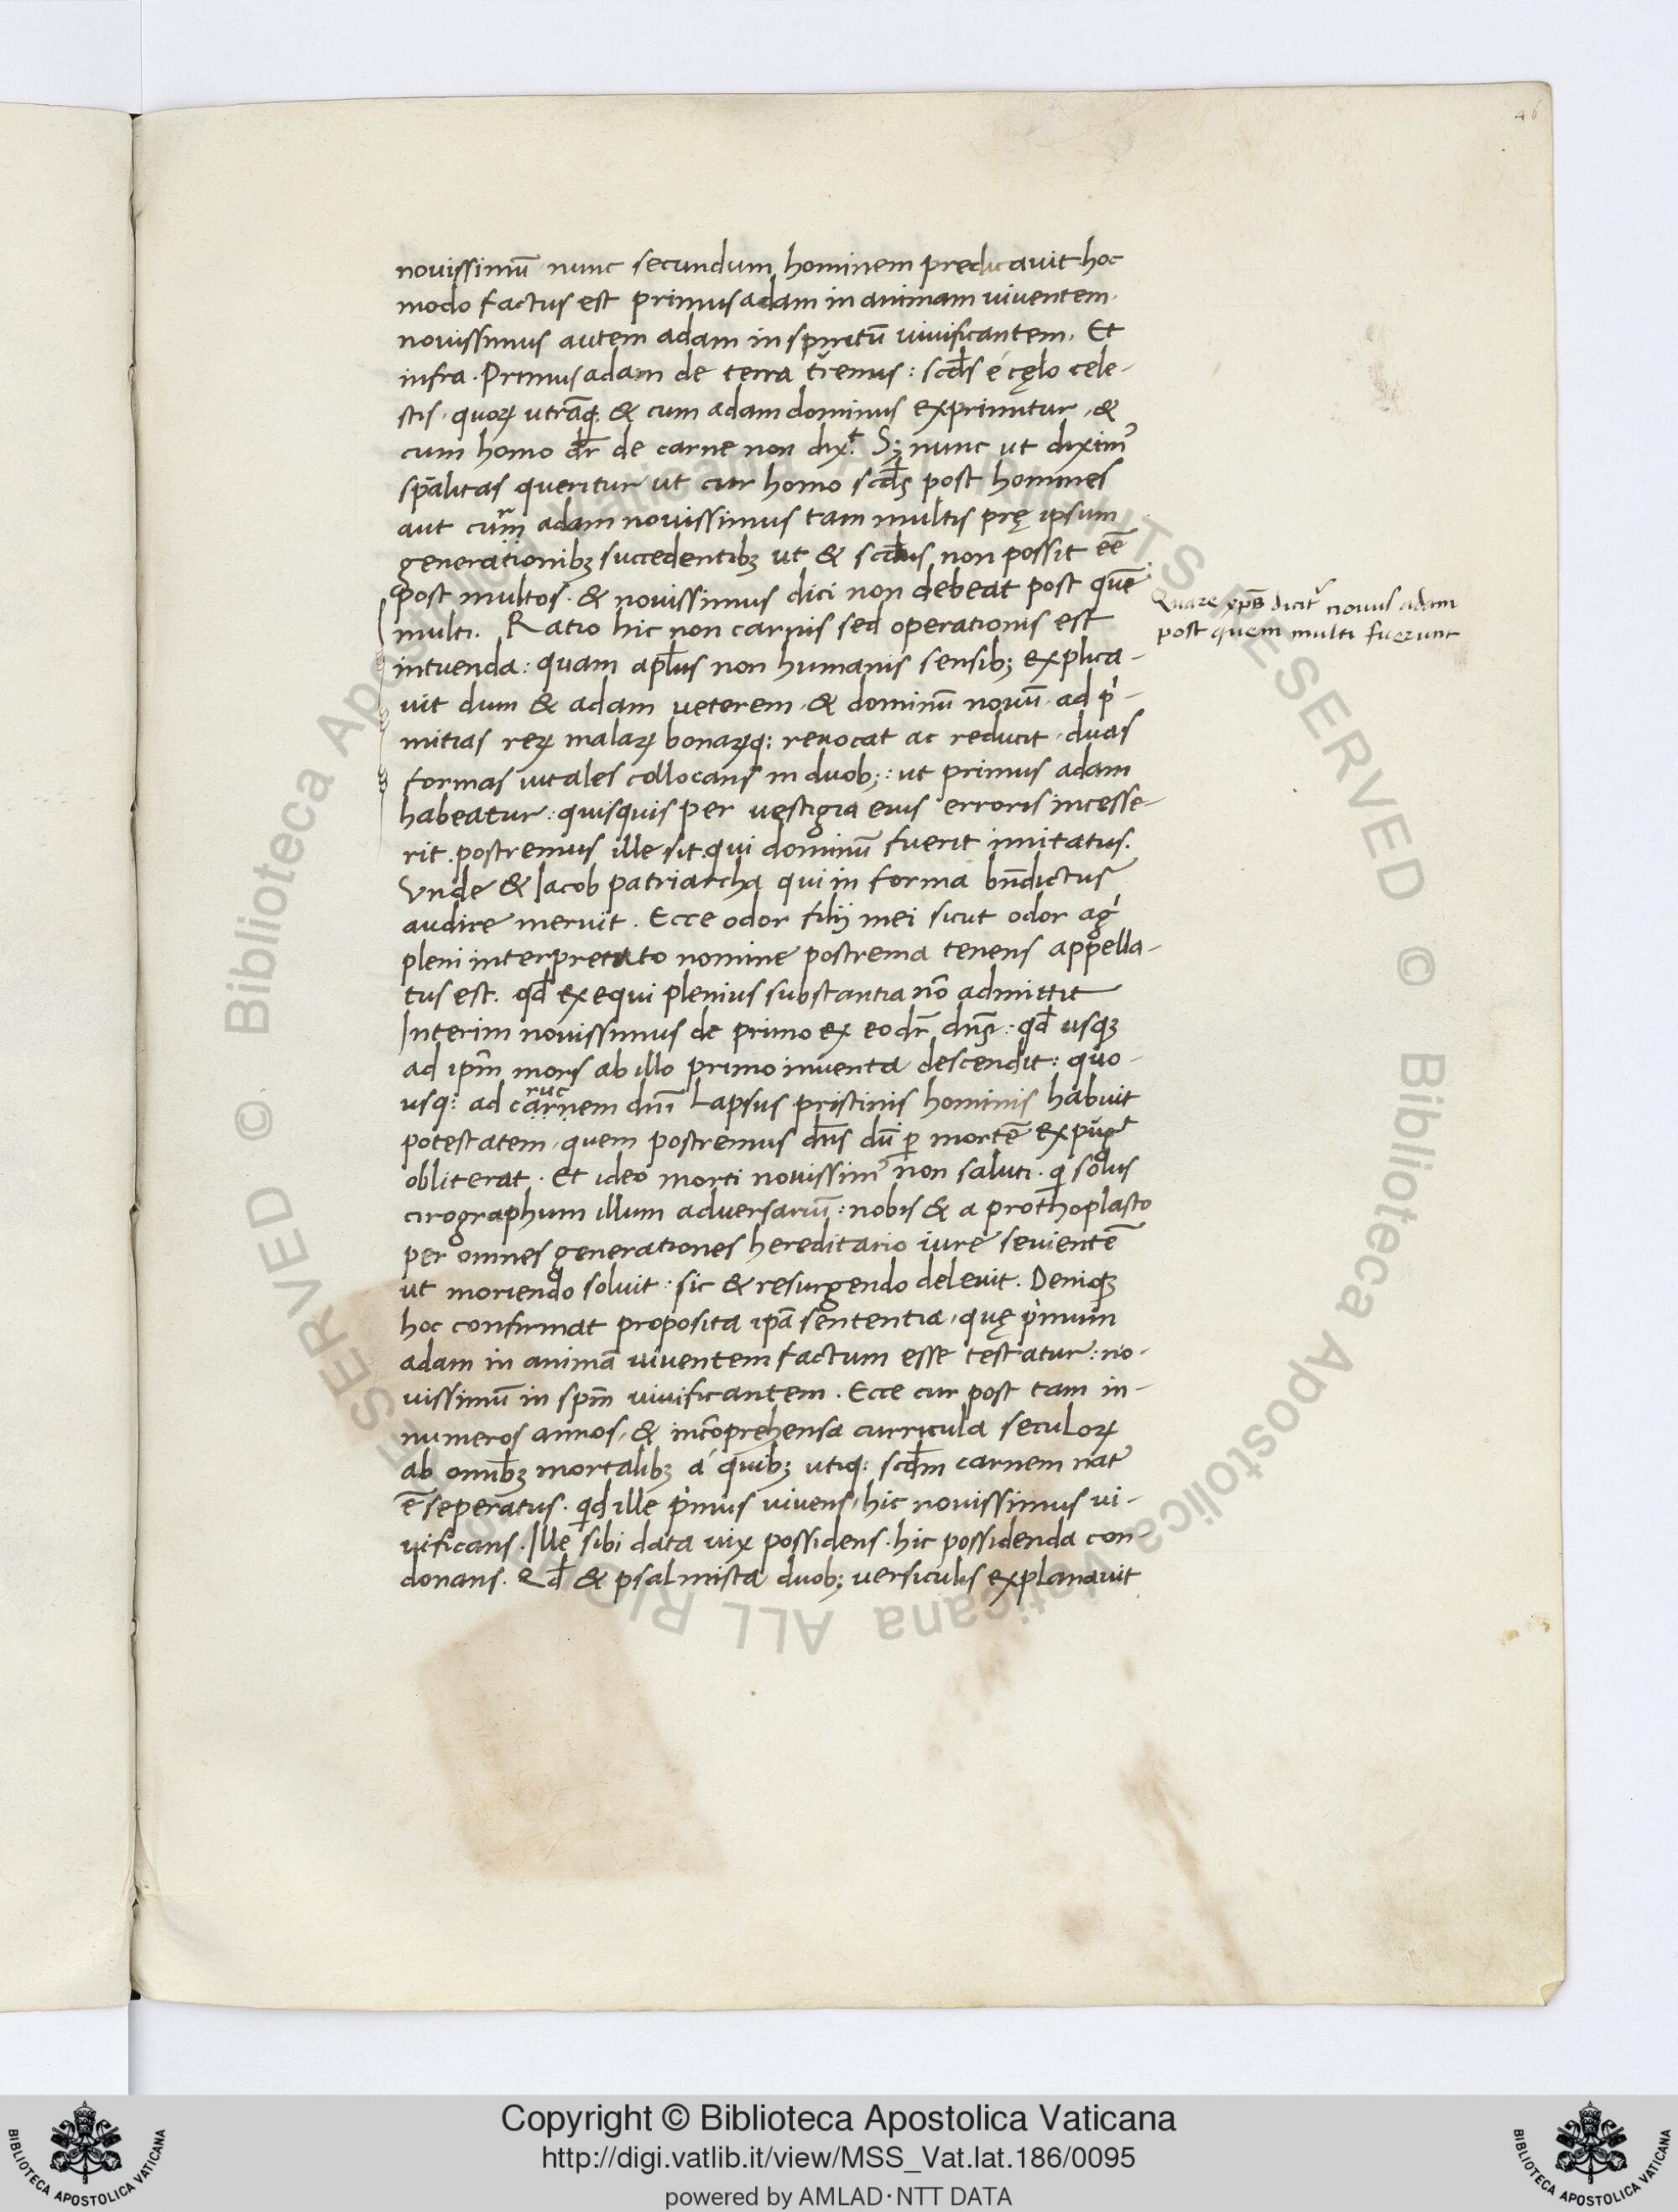 46
nouissimū nunc secundum hominem predicauit hoc
modo factus est primus adam in animam uiuentem.
nouissimus autem adam in spiritū uiuificantem. Et
infra. Primus adam de terra t̄renus: scd̄s é cęlo cele-
stis. quoꝝ utrāq; & cum adam dominus exprimitur. &
cum homo dr̄ de carne non dixᵗ. Sꝫ nunc ut diximꝰ
sp̄alitas queritur ut cur homo scd̄s post homines
aut cur adam nouissimus tam multis pre̜ ipsum
generationibꝫ succedentibꝫ ut & scdus non possit eē
post multos. & nouissimus dici non debeat post quē
multi. Ratio hic non carnis sed operationis est
intuenda: quam apl̄us non humanis sensibꝫ explica-
uit dum & adam ueterem. & dominū nouū. ad p̍-
mitias reꝝ malaꝝ bonaꝝq: reuocat ac reducit. duas
formas uitales collocans in duobꝫ: ut primus adam
habeatur: quisquis per uestigia eius erroris incesse-
rit. postremus ille sit. qui dominū fuerit imitatus.
Vnde & Iacob patriarcha qui in forma bn̄dictus
audire meruit. Ecce odor filij mei sicut odor ag̍
pleni interpretato nomine postrema tenens appella-
tus est. qd̄ exequi plenius substantia nō admittit
Interim nouissimus de primo ex eo dr̄ dn̄s: qd̄ usqꝫ
ad ip̄m mors ab illo primo inuenta descendit: quo-
usq: ad carnem dn̄i Lapsus pristinis hominis habuit
ruc
potestatem. quem postremus dn̄s dū ꝑ mortē
obliterat. Et ideo morti nouissimꝰ non saluti. qi solus
cirographum illum aduersariū: nobis & a prothoplasto
per omnes generationes hereditario iure seuientē
ut moriendo soluit: sic & resurgendo deleuit. Deniqꝫ
hoc confirmat proposita ip̄a sententia. quę p̍mum
adam in animā uiuentem factum esse testatur: no-
uissimū in sp̄m uiuificantem. Ecce cur post tam in-
numeros annos. & incōprehensa curricula seculoꝝ
ab omībꝫ mortalibꝫ á quibꝫ utiq: scd̄m carnem natꝰ
ē seperatus. qd̄ ille p̍mus uiuens. hic nouissimus ui-
uificans. Ille sibi data uix possidens. hic possidenda con-
donans. Qd̄ & psalmista duobꝫ uersiculis explanauit
Quare xp̄s dicit̉ nouus adam
post quem multi fuerunt
© Biblioteca Apostolica Vaticana ALL RIGHTS RESERVED © Biblioteca Apostolica Vaticana ALL RIGHTS RESERVED
BIBLIOTECA APOSTOLICA VATICANA
Copyright © Biblioteca Apostolica Vaticana
http://digi.vatlib.it/view/MSS_Vat.lat.186/0095
powered by AMLAD·NTT DATA
BIBLIOTECA APOSTOLICA VATICANA